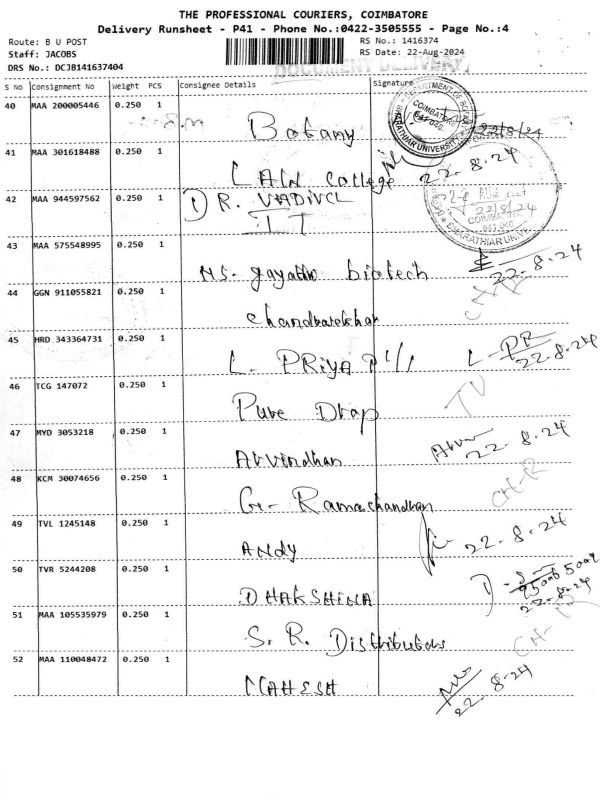 THE PROFESSIONAL COURIERS, COIMBATORE
Delivery Runsheet - P41 - Phone No.:0422-3505555 - Page No.:4
Route: B U POST
RS No.: 1416374
Staff: JACOBS
RS Date: 22-Aug-2024
DRS No.: DCJB141637404
DOCUMENT DELIVERY
S No Consignment No Weight PCS Consignee Details Signature
40 MAA 200005446 0.250 1
Botany 22/8/24
41 MAA 301618488 0.250 1
LAW College 22.8.24
42 MAA 944597562 0.250 1
DR. VADIVEL
IT
22/8/24
43 MAA 575548995 0.250 1
MS. gayathri biotech 22.8.24
44 GGN 911055821 0.250 1
Chandrasekhar
45 HRD 343364731 0.250 1
L. PRIYA 22.8.24
46 TCG 147072 0.250 1
Pure Drap
47 MYD 3053218 0.250 1
Arvindhan 22.8.24
48 KCM 30074656 0.250 1
G- Ramachandhan
49 TVL 1245148 0.250 1
ANDY 22.8.24
50 TVR 5244208 0.250 1
DHAKSHINA 22.8.24
51 MAA 105535979 0.250 1
S. R. Distributors
52 MAA 110048472 0.250 1
MAHESH 22.8.24